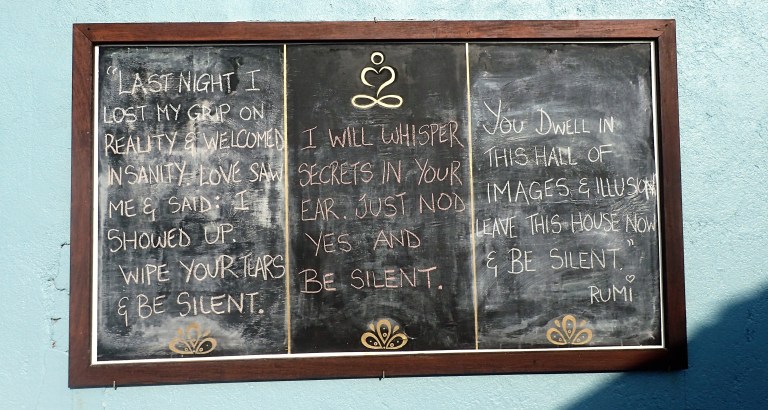 "LAST NIGHT I
LOST MY GRIP ON
REALITY & WELCOMED
INSANITY. LOVE SAW
ME & SAID: I
SHOWED UP.
WIPE YOUR TEARS
& BE SILENT.
I WILL WHISPER
SECRETS IN YOUR
EAR. JUST NOD
YES AND
BE SILENT.
YOU DWELL IN
THIS HALL OF
IMAGES & ILLUSION
LEAVE THIS HOUSE NOW
& BE SILENT."
RUMi